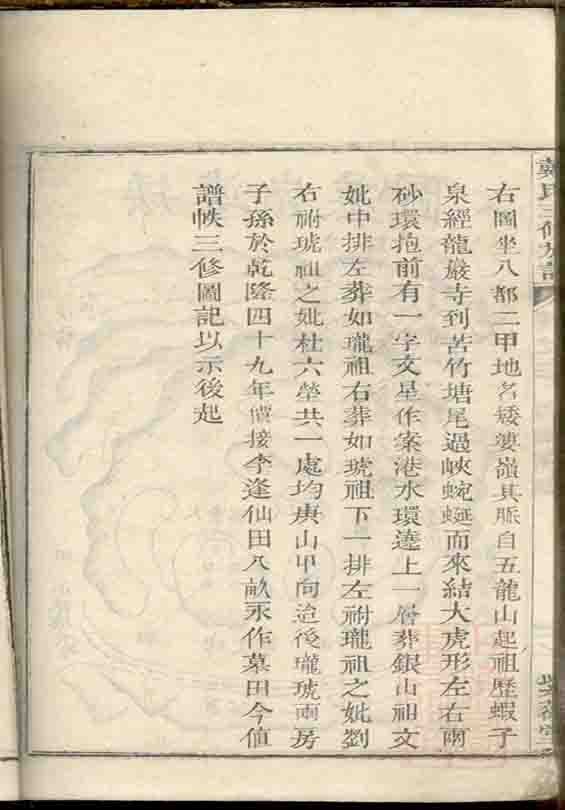 戴氏三修族譜
右圖坐八都二甲地名矮婆嶺其脈自五龍山起祖歷蝦子
泉經龍嚴寺到苦竹塘尾過峽蜿蜒而來結大虎形左右兩
砂環抱前有一字文星作案港水環遶上一層葬銀山祖文
妣中排左葬如瓏祖右葬如琥祖下一排左祔瓏祖之妣劉
右祔琥祖之妣杜六塋共一處均庚山甲向迨後瓏琥兩房
子孫於乾隆四十九年價接李逢仙田八畝永作墓田今值
譜帙三修圖記以示後起